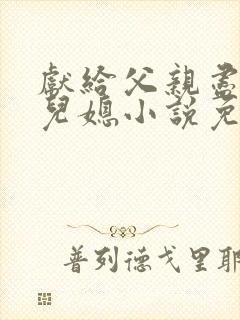 獻給父親盡
兒媳小說免
普列德戈里耶